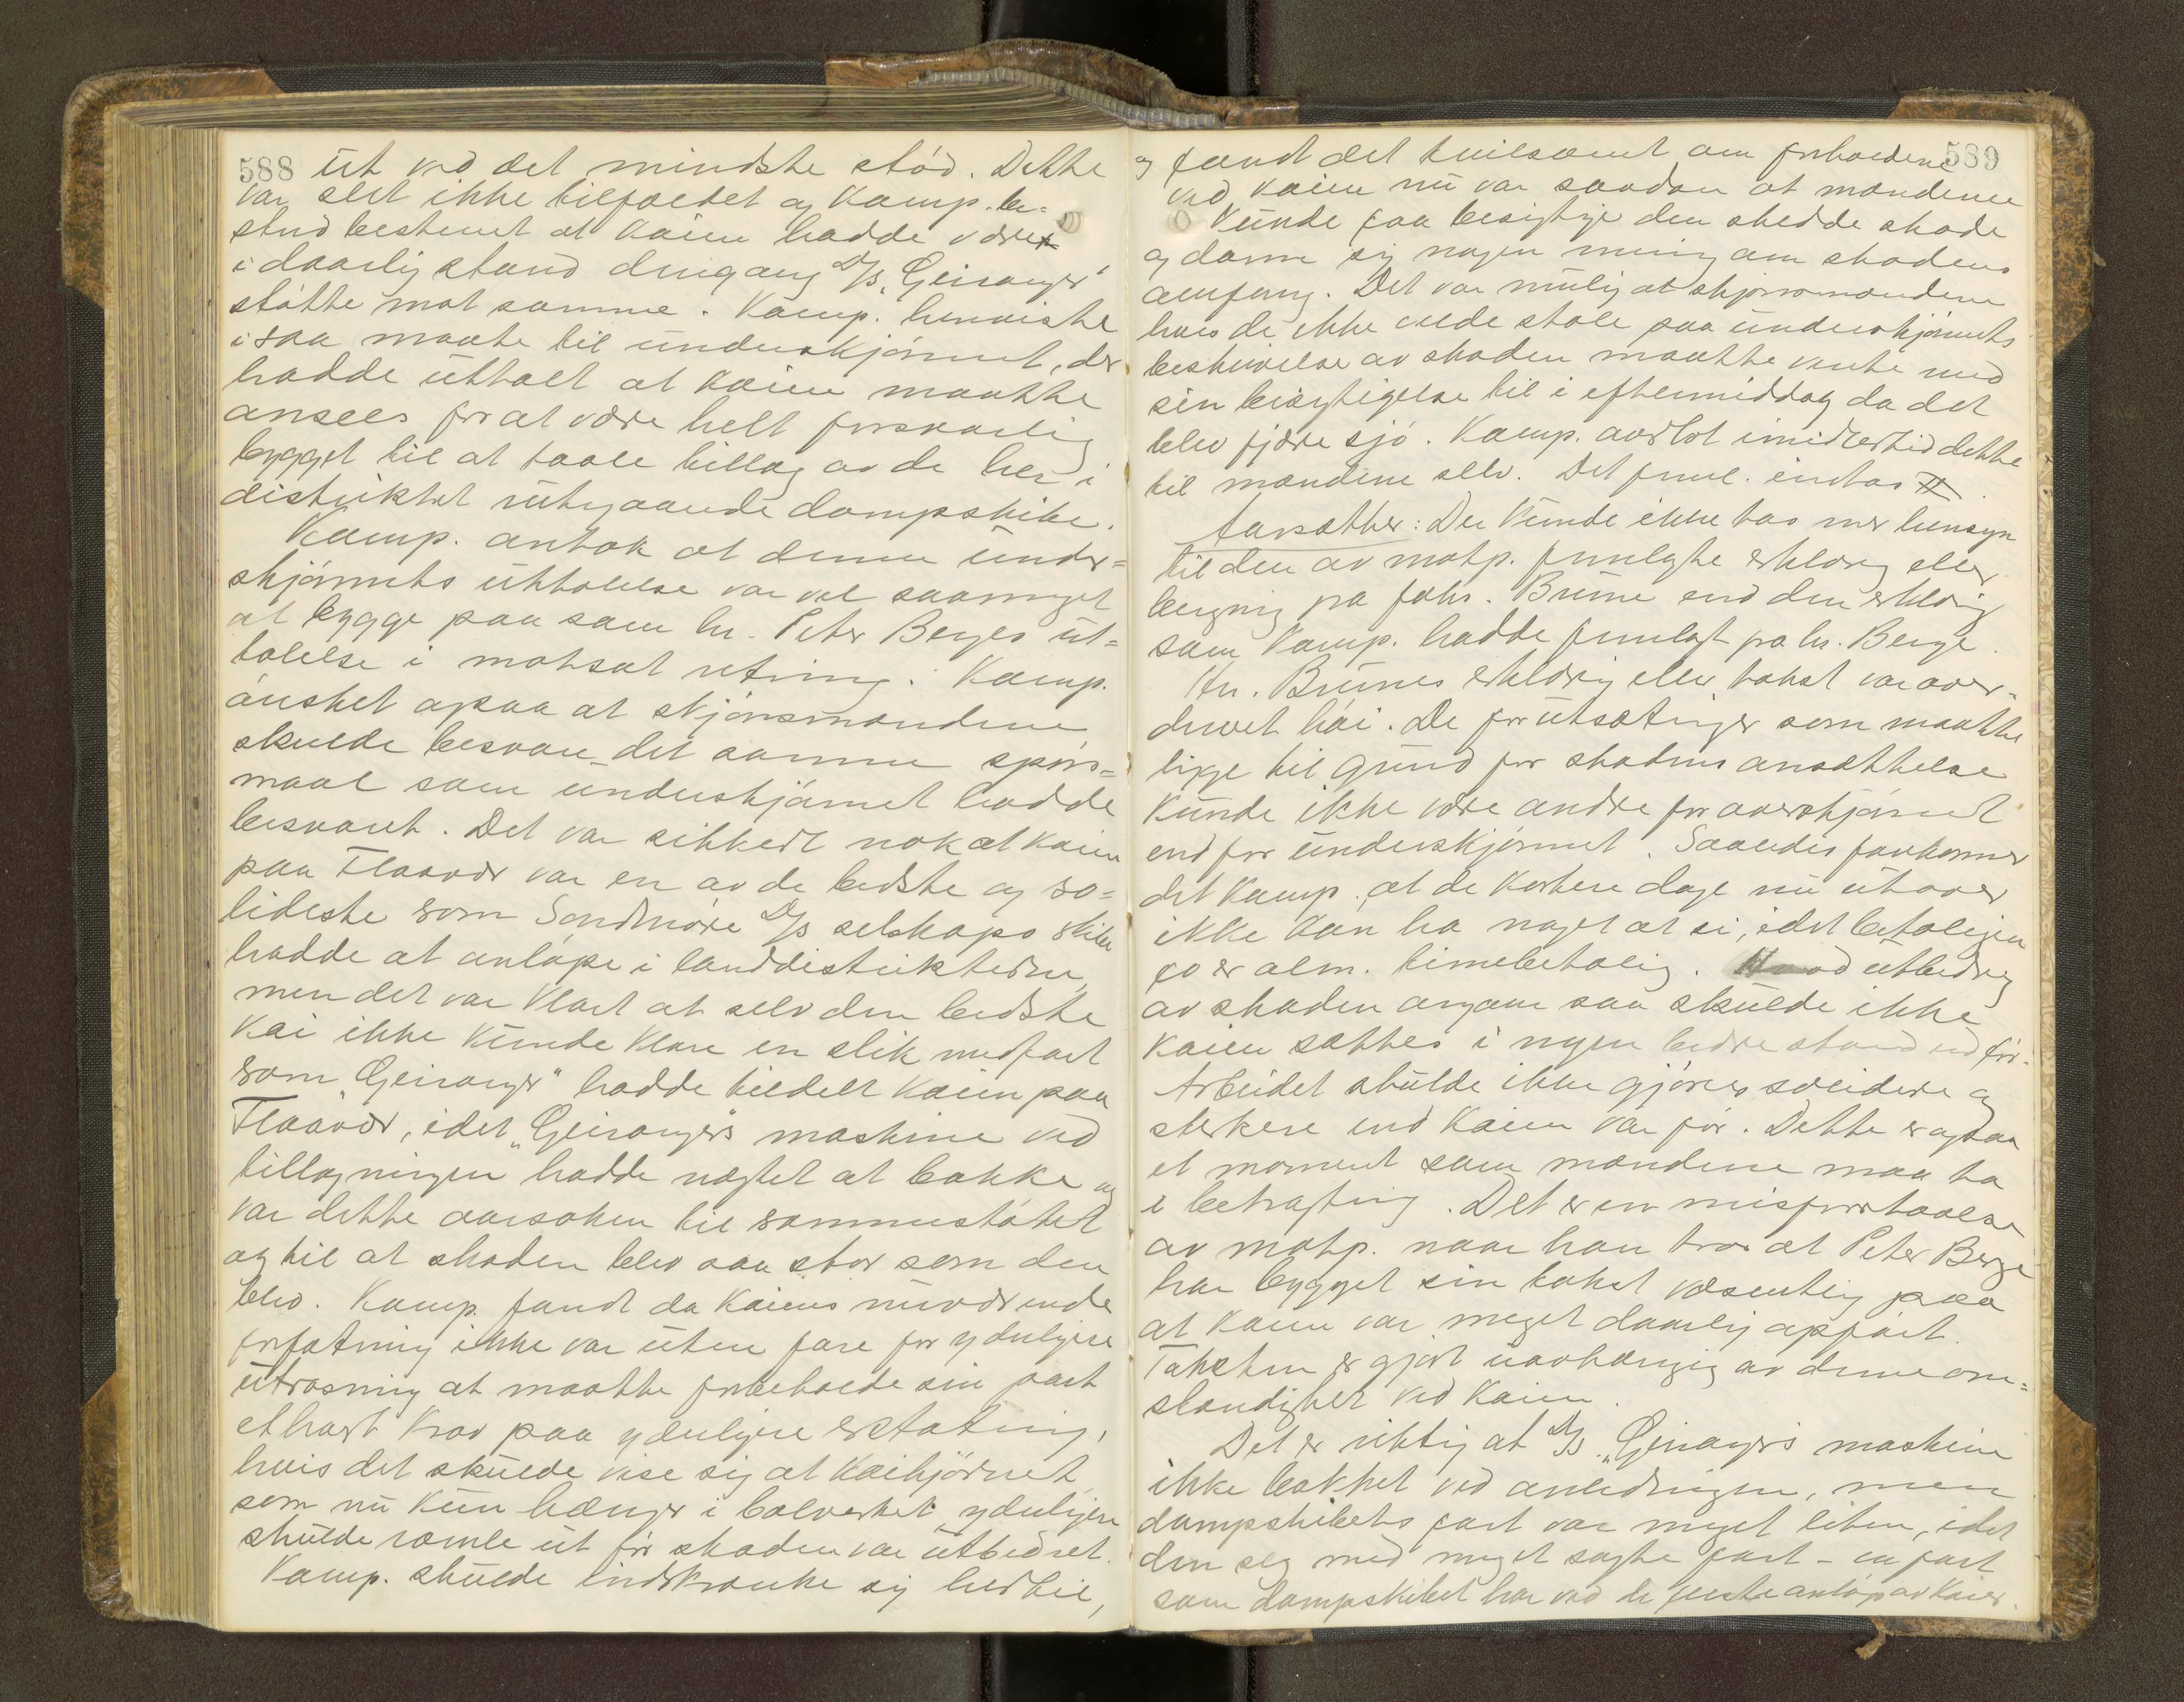 588 ut ved det mindste stöd. Dette
var slet ikke tilfældet og Kamp. be-
stred bestemt at Kaien hadde været
i daarlig stand dengang D/S "Geiranger"
stötte mot samme. Kamp. henviste
i saa maate til underskjønnet, der
hadde uttalt at Kaien maatte
ansees for at være helt forsvarlig
bygget til at taale tillæg av de her i
distriktet rutegaaende dampskibe.
Kamp. antok at denne under=
skjønnets uttalelse var vel saa meget
at bygge paa som hr. Peter Berges ut=
talelse i motsat retning. Kamp.
ønsket ogsaa at skjønsmændene
skulde besvare det samme spørs=
maal som underskjønnet hadde
besvaret. Det var sikkert nok at Kaien
paa Flaavær var en av de bedste og so=
lideste som Søndmøre D/S selskaps skibe
hadde at anløpe i landdistrikterne,
men det var klart at selv den bedste
Kai ikke kunde klare en slik medfart
som "Geiranger" hadde tildelt Kaien paa
Flaavær, idet "Geiranger"s maskine ved
tillægningen hadde nægtet at bakke og
var dette aarsaken til sammenstøtet
og til at skaden blev saa stor som den
blev. Kamp. fandt da Kaiens nuværende
forfatning ikke var uten fare for yderligere
utrasning at maatte forbeholde sin part
ethvert krav paa yderligere erstatning,
hvis det skulde vise sig at Kaihjørnet,
som nu kun hænger i bolverket yderligere
skulde ramle ut før skaden var utbedret.
Kamp. skulde indskrænke sig hertil,
589
og fandt det tvilsomt om forholdene
ved Kaien nu var saadan at mændene
kunde faa besigtige den skedde skade
og danne sig nogen mening om skadens
omfang. Det var mulig at skjønsmændene
hvis de ikke vilde stole paa underskjønnets
beskrivelse av skaden maatte vente med
sin besigtigelse til i eftermiddag da det
blev fjære sjø. Kamp. overlot imidlertid dette
til mændene selv. Det freml. indtas #.
Aarsæther: Der kunde ikke tas mer hensyn
til den av motp. fremlagte erklæring eller
beregning fra fohv. Brune end den erklæring
som Kamp. hadde fremlagt fra hr. Berge.
Hr. Brunes erklæring eller takst var over-
drevet høi. De forutsætninger som maatte
ligge til grund for skadens ansættelse
kunde ikke være andre for overskjønnet
end for underskjønnet. Saaledes forekommer
det Kamp. at de kortere dage nu utover
ikke kan ha noget at si, idet betalingen
jo er alm. timebetaling. Hvad utbedring
av skaden angaar saa skulde ikke
Kaien sættes i nogen bedre stand end før.
Arbeidet skulde ikke gjøres solidere og
sterkere end Kaien var før. Dette er ogsaa
et moment som mændene maa ta
i betragtning. Det er en misforstaaelse
av motp. naar han tror at Peter Berge
har bygget sin takst væsentlig paa
at Kaien var meget daarlig opført.
Taksten er gjort uavhængig av denne om=
stændighet ved Kaien.
Det er riktig at D/S "Geiranger"s maskine
ikke bakket ved anledningen, men
dampskibets fart var meget liten, idet
den seg med meget sagte fart - en fart
som dampskibet har ved de fleste anløp av Kaier.